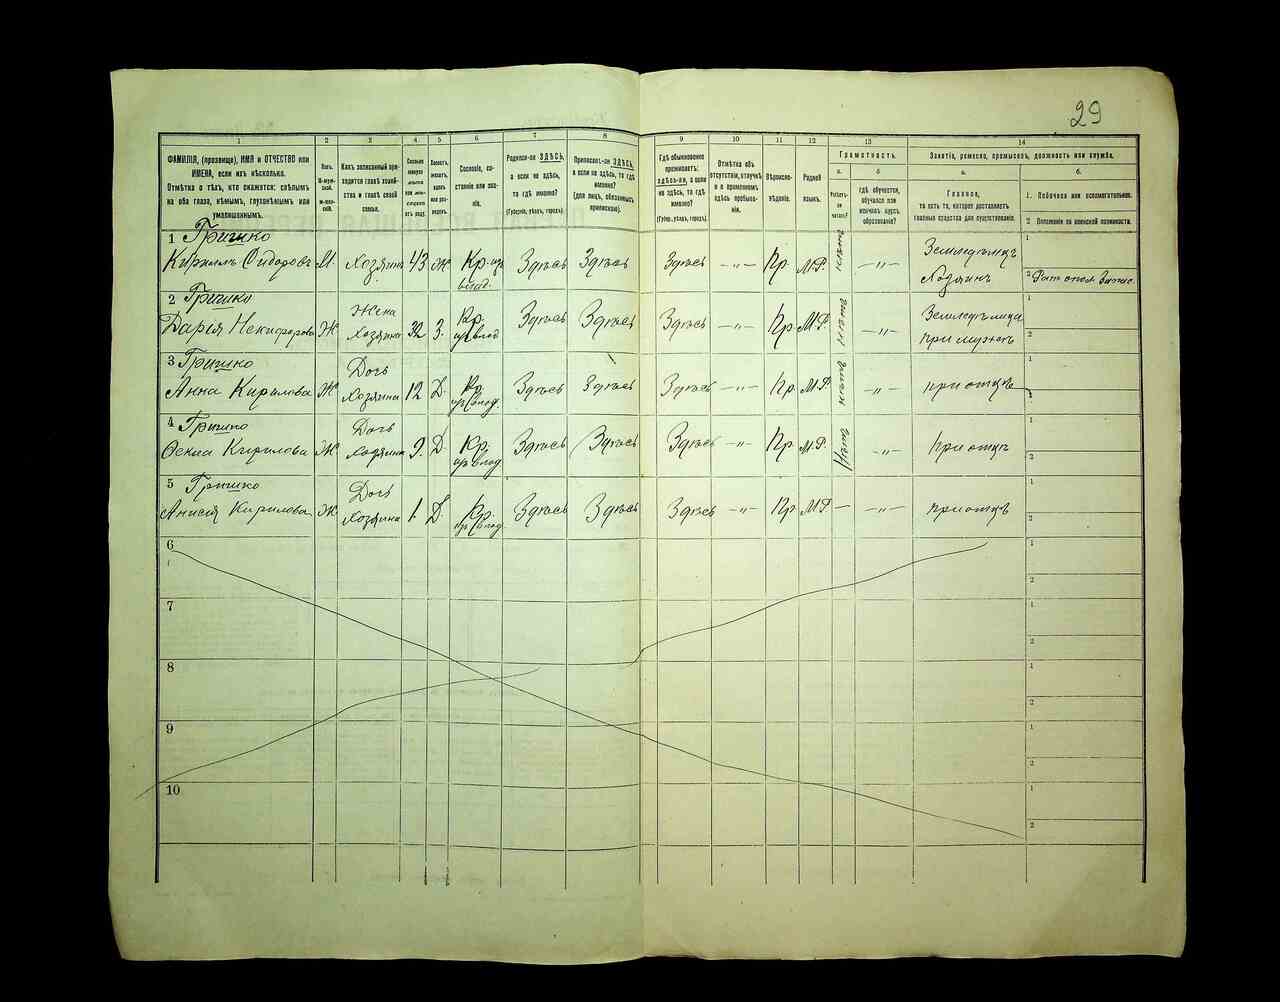 29
1 2 3 4 5 6 7 8 9 10 11 12 13 14
ФАМИЛІЯ, (прозвище), ИМЯ и ОТЧЕСТВО или
ИМЕНА, если ихъ нѣсколько.
Отмѣтка о тѣхъ, кто окажется: слѣпымъ
на оба глаза, нѣмымъ, глухонѣмымъ или
умалишеннымъ.
Полъ.
Какъ записанный при-
ходится главѣ хозяй-
ства и главѣ своей
семьи.
Сколько
минуло
лѣтъ
или мѣ-
сяцевъ
отъ роду.
Холостъ,
женатъ,
вдовъ
или раз-
веденъ.
Сословіе, со-
стояніе или зва-
ніе.
Родился-ли ЗДѢСЬ,
а если не здѣсь,
то гдѣ именно?
(Губернія, уѣздъ, городъ).
Приписанъ-ли ЗДѢСЬ,
а если не здѣсь, то гдѣ
именно?
(для лицъ, обязанныхъ
припискою).
Гдѣ обыкновенно
проживаетъ:
здѣсь-ли, а если
не здѣсь, то гдѣ
именно?
(Губер., уѣздъ, городъ).
Отмѣтка объ
отсутствіи, отлучкѣ
и о временномъ
здѣсь пребыва-
ніи.
Вѣроиспо-
вѣданіе.
Родной
языкъ.
Грамотность.
а.
Умѣетъ-
ли
читать?
б.
Гдѣ обучается,
обучался или
кончилъ курсъ
образованія?
Занятіе, ремесло, промыселъ, должность или служба.
а.
Главное,
то есть то, которое доставляетъ
главныя средства для существованія.
б.
1. Побочное или вспомогательное.
2. Положеніе по воинской повинности.
1 Гришко
Кирилъ Сидоровъ М. Хозяинъ 43 Ж Кр. из влад. Здѣсь Здѣсь Здѣсь —"— Пр М.Р. нѣтъ —"— Земледѣлецъ Хозяинъ 1 2
2 Гришко
Дарія Никифорова Ж Жена Хозяина 32 З. Кр. из влад Здѣсь Здѣсь Здѣсь —"— Пр М.Р. нѣтъ —"— Земледѣлица при мужѣ 1 2
3 Гришко
Анна Кирилова Ж Дочь Хозяина 12 Д. Кр из влад. Здѣсь Здѣсь Здѣсь —"— Пр. М.Р. нѣтъ —"— при отцѣ 1 2
4 Гришко
Кирилова Ж Дочь Хозяина 9. Д. Кр. из влад. Здѣсь Здѣсь Здѣсь —"— Пр М.Р. Нѣтъ —"— при отцѣ 1 2
5 Гришко
Анисія Кирилова Ж Дочь Хозяина 1. Д. Кр. из влад. Здѣсь Здѣсь Здѣсь —"— Пр М.Р. — —"— при отцѣ 1 2
6 1 2
7 1 2
8 1 2
9 1 2
10 1 2